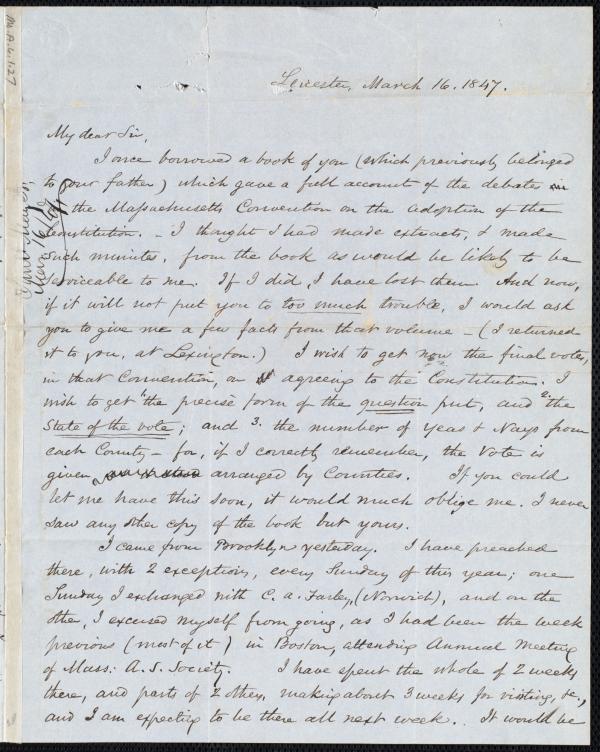 M.A.6.1.27
Leicester, March 16. 1847.
My dear Sir,
I once borrowed a book of you (which previously belonged
to your father) which gave a full account of the debates in
the Massachusetts Convention on the adoption of the
Constitution. - I thought I had made extracts, & made
such minutes, from the book as would be likely to be
serviceable to me. If I did, I have lost them. And now,
if it will not put you to too much trouble, I would ask
you to give me a few facts from that volume - (I returned
it to you, at Lexington.) I wish to get now the final votes,
in that Convention, on agreeing to the Constitution. I
wish to get 1. the precise form of the question put, and 2. the
State of the vote; and 3. the number of Yeas & Nays from
each County - for, if I correctly remember, the Vote is
given arranged by Counties. If you could
let me have this soon, it would much oblige me. I never
saw any other copy of the book but yours.
I came from Brooklyn yesterday. I have preached
there, with 2 exceptions, every Sunday of this year; one
Sunday I exchanged with C. A. Farley, (Norwich), and on the
other, I excused myself from going, as I had been the week
previous (most of it) in Boston, attending Annual Meeting
of Mass: A. S. Society. I have spent the whole of 2 weeks
there, and parts of 2 others, making about 3 weeks for visiting, &c.,
and I am expecting to be there all next week. . It would be